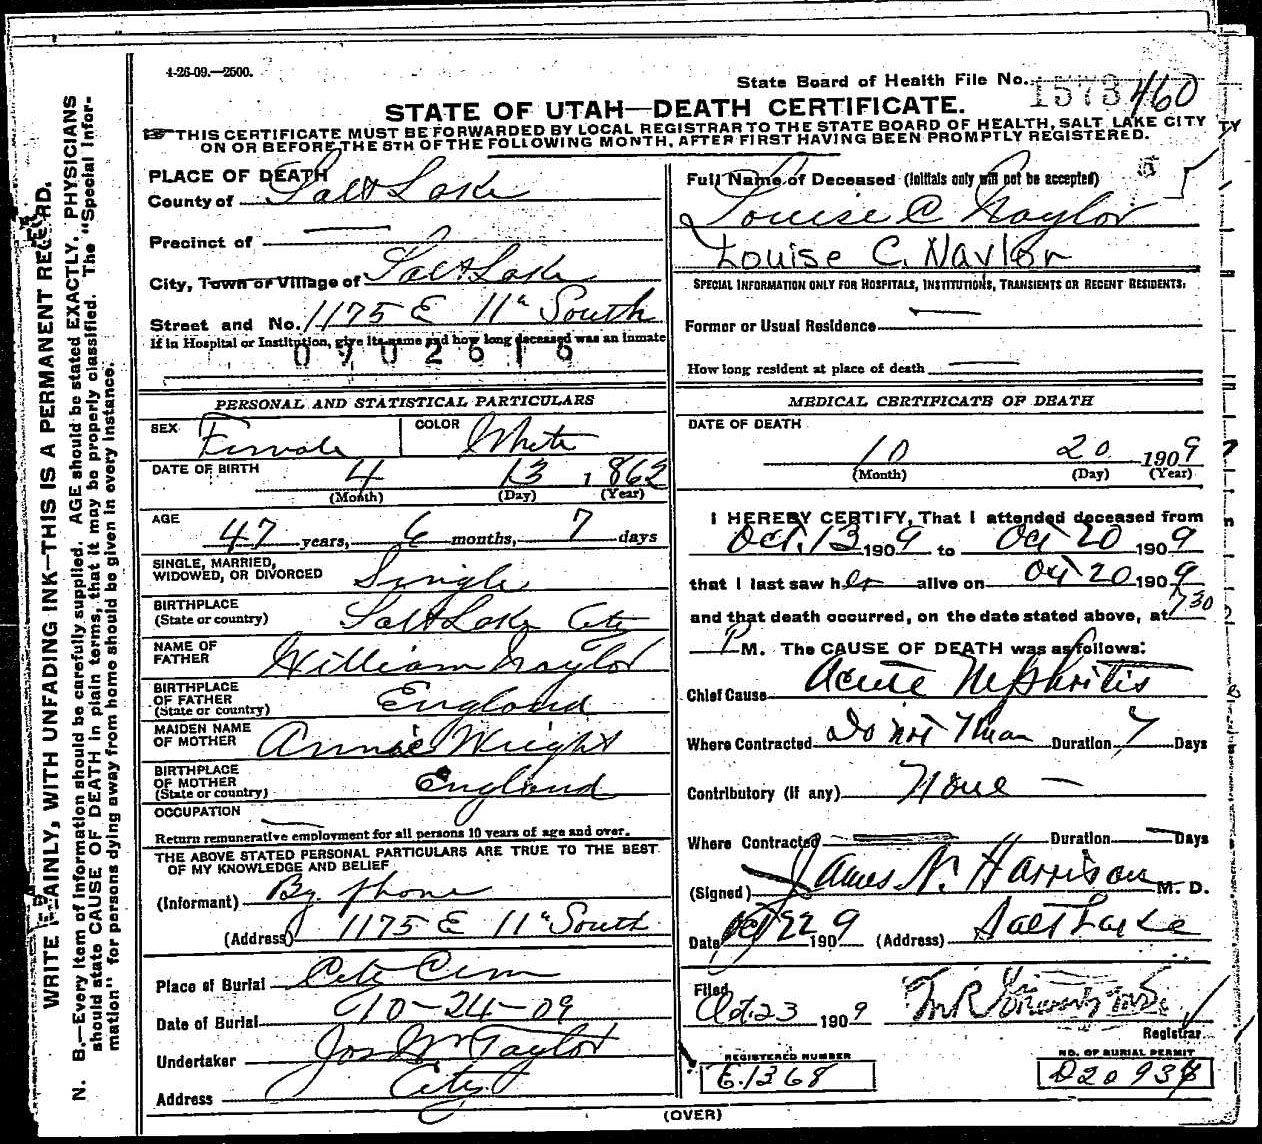 4-26-09.—2500.
State Board of Health File No. 1573 460
STATE OF UTAH—DEATH CERTIFICATE.
THIS CERTIFICATE MUST BE FORWARDED BY LOCAL REGISTRAR TO THE STATE BOARD OF HEALTH, SALT LAKE CITY
ON OR BEFORE THE 5TH OF THE FOLLOWING MONTH, AFTER FIRST HAVING BEEN PROMPTLY REGISTERED.
WRITE PLAINLY, WITH UNFADING INK—THIS IS A PERMANENT RECORD.
N. B.—Every item of information should be carefully supplied. AGE should be stated EXACTLY. PHYSICIANS
should state CAUSE OF DEATH in plain terms, that it may be properly classified. The "Special Infor-
mation" for persons dying away from home should be given in every instance.
PLACE OF DEATH
County of Salt Lake
Precinct of —
City, Town or Village of Salt Lake
Street and No. 1175 E 11th South
If in Hospital or Institution, give its name and how long deceased was an inmate
0902616
PERSONAL AND STATISTICAL PARTICULARS
SEX Female COLOR White
DATE OF BIRTH 4 13 1862
(Month) (Day) (Year)
AGE
47 years, 6 months, 7 days
SINGLE, MARRIED,
WIDOWED, OR DIVORCED Single
BIRTHPLACE
(State or country) Salt Lake City
NAME OF
FATHER William Naylor
BIRTHPLACE
OF FATHER
(State or country) England
MAIDEN NAME
OF MOTHER Annie Wright
BIRTHPLACE
OF MOTHER
(State or country) England
OCCUPATION —
Return remunerative employment for all persons 10 years of age and over.
THE ABOVE STATED PERSONAL PARTICULARS ARE TRUE TO THE BEST
OF MY KNOWLEDGE AND BELIEF
(Informant) By phone
(Address) 1175 E 11th South
Place of Burial City Cem
Date of Burial 10-24-09
Undertaker Jos Wm Taylor
Address City
Full Name of Deceased (Initials only will not be accepted)
Louise C Naylor
Louise C. Naylor
SPECIAL INFORMATION ONLY FOR HOSPITALS, INSTITUTIONS, TRANSIENTS OR RECENT RESIDENTS:
Former or Usual Residence —
How long resident at place of death —
MEDICAL CERTIFICATE OF DEATH
DATE OF DEATH
10 20 1909
(Month) (Day) (Year)
I HEREBY CERTIFY, That I attended deceased from
Oct. 13 1909 to Oct 20 1909
that I last saw her alive on Oct 20 1909
and that death occurred, on the date stated above, at 730
P M. The CAUSE OF DEATH was as follows:
Chief Cause Acute Nephritis
Where Contracted Do not Know Duration 7 Days
Contributory (if any) None —
Where Contracted — Duration — Days
(Signed) James N. Harrison M. D.
Date Oct 22 1909 (Address) Salt Lake
Filed
Oct. 23 1909
Registrar
REGISTERED NUMBER
E.1368
NO. OF BURIAL PERMIT
D20938
(OVER)